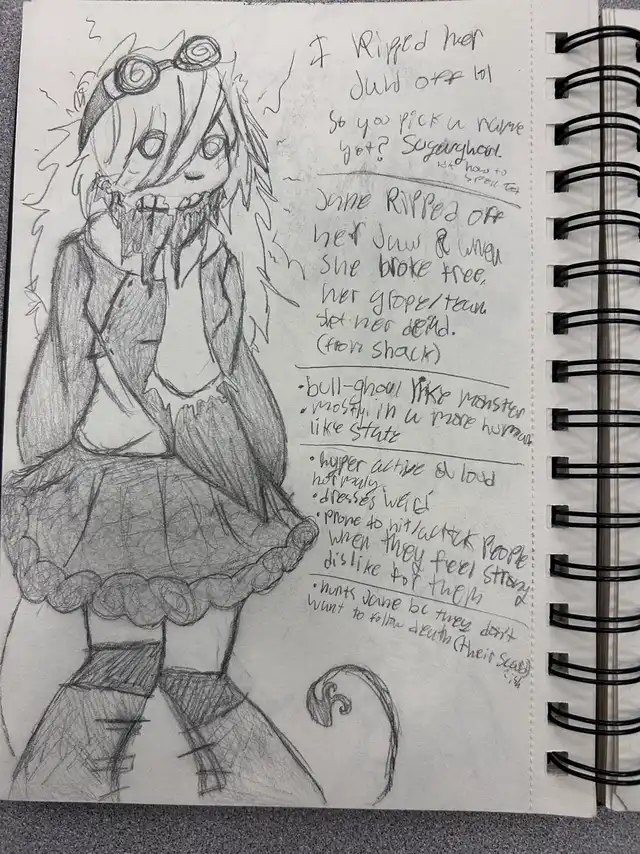 I Ripped her
Jaw off lol
So you pick a name
yet? Sugarghoul.
idk how to
Jane Ripped off
her Jaw & when
she broke free,
her
Set her dead.
(from shack)
• bull-ghoul like monster
• mostly in a more human
like state
• hyper active & loud
normaly
• dresses weird
• prone to hit/attack People
when they feel strong
dislike for them
• hunts Jane bc they don't
want to follow death (their scared)